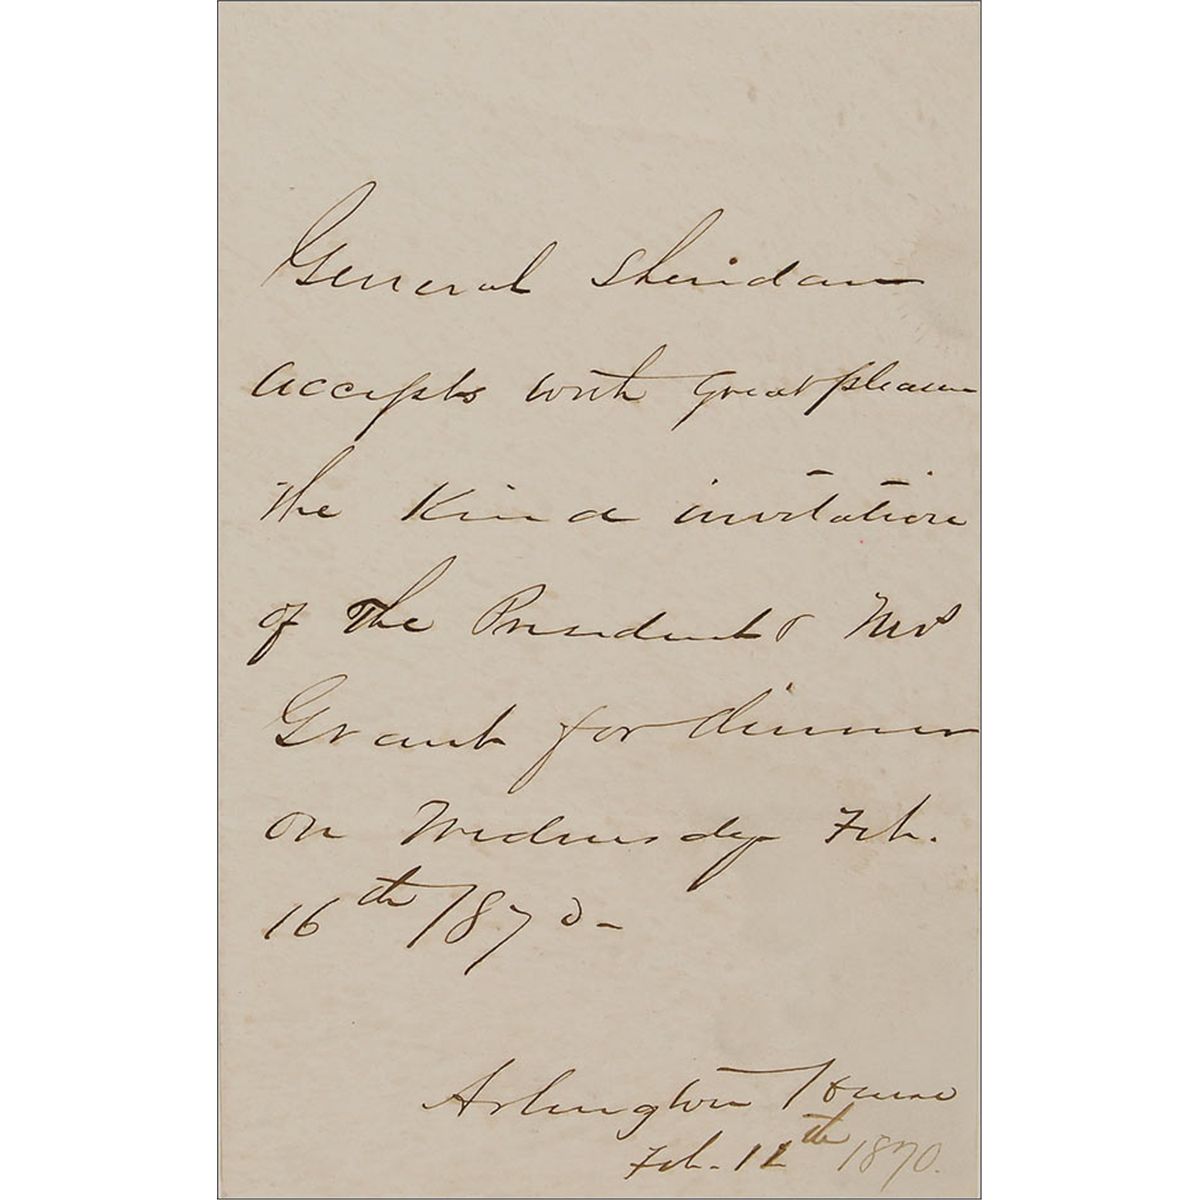 General Sheridan
accepts with great pleasure
the Kind invitation
of the President & Mrs
Grant for dinner
on Wednesday Feb.
16th 1870-
Arlington House
Feb. 12th 1870.